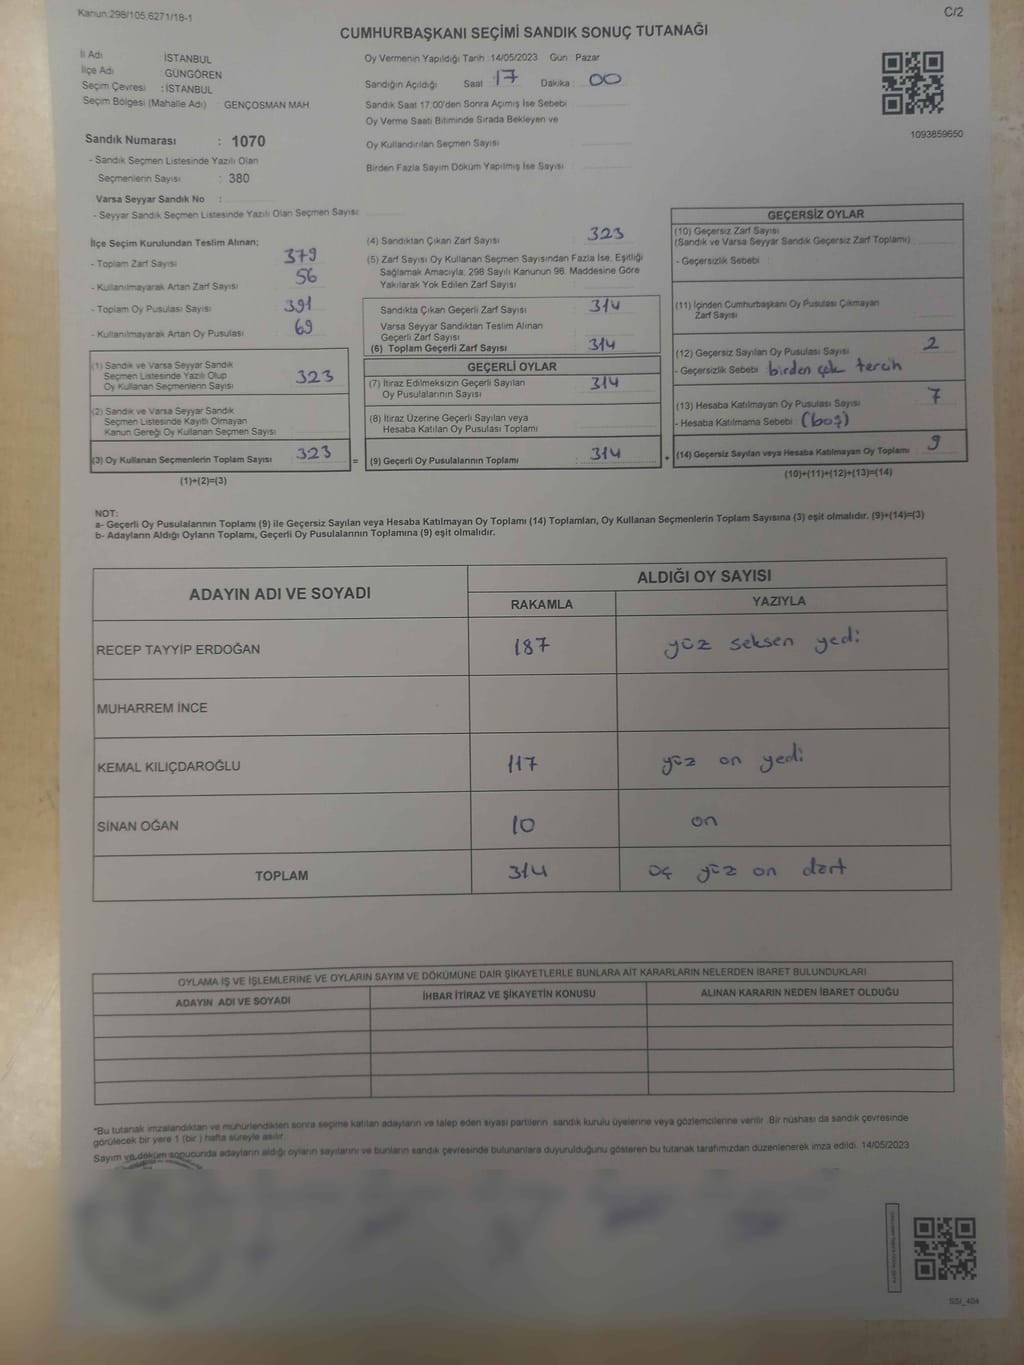 Kanun:298/105,6271/18-1
C/2
CUMHURBAŞKANI SEÇİMİ SANDIK SONUÇ TUTANAĞI
İl Adı : İSTANBUL
İlçe Adı : GÜNGÖREN
Seçim Çevresi : İSTANBUL
Seçim Bölgesi (Mahalle Adı) : GENÇOSMAN MAH.
Oy Vermenin Yapıldığı Tarih :14/05/2023 Gün : Pazar
Sandığın Açıldığı Saat : 17 Dakika : 00
Sandık Saat 17:00'den Sonra Açımış İse Sebebi :
Oy Verme Saati Bitiminde Sırada Bekleyen ve
Oy Kullandırılan Seçmen Sayısı :
Birden Fazla Sayım Döküm Yapılmış İse Sayısı :
1093859650
Sandık Numarası : 1070
- Sandık Seçmen Listesinde Yazılı Olan
Seçmenlerin Sayısı : 380
Varsa Seyyar Sandık No :
- Seyyar Sandık Seçmen Listesinde Yazılı Olan Seçmen Sayısı:
İlçe Seçim Kurulundan Teslim Alınan;
- Toplam Zarf Sayısı : 379
- Kullanılmayarak Artan Zarf Sayısı : 56
- Toplam Oy Pusulası Sayısı : 391
- Kullanılmayarak Artan Oy Pusulası : 69
(1) Sandık ve Varsa Seyyar Sandık
Seçmen Listesinde Yazılı Olup
Oy Kullanan Seçmenlerin Sayısı : 323
(2) Sandık ve Varsa Seyyar Sandık
Seçmen Listesinde Kayıtlı Olmayan
Kanun Gereği Oy Kullanan Seçmen Sayısı :
(3) Oy Kullanan Seçmenlerin Toplam Sayısı : 323
(1)+(2)=(3)
(4) Sandıktan Çıkan Zarf Sayısı : 323
(5) Zarf Sayısı Oy Kullanan Seçmen Sayısından Fazla İse, Eşitliği
Sağlamak Amacıyla; 298 Sayılı Kanunun 98. Maddesine Göre
Yakılarak Yok Edilen Zarf Sayısı :
Sandıkta Çıkan Geçerli Zarf Sayısı : 314
Varsa Seyyar Sandıktan Teslim Alınan
Geçerli Zarf Sayısı :
(6) Toplam Geçerli Zarf Sayısı : 314
GEÇERLİ OYLAR
(7) İtiraz Edilmeksizin Geçerli Sayılan
Oy Pusulalarının Sayısı : 314
(8) İtiraz Üzerine Geçerli Sayılan veya
Hesaba Katılan Oy Pusulası Toplamı :
= (9) Geçerli Oy Pusulalarının Toplamı : 314 +
GEÇERSİZ OYLAR
(10) Geçersiz Zarf Sayısı
(Sandık ve Varsa Seyyar Sandık Geçersiz Zarf Toplamı) :
- Geçersizlik Sebebi :
(11) İçinden Cumhurbaşkanı Oy Pusulası Çıkmayan
Zarf Sayısı :
(12) Geçersiz Sayılan Oy Pusulası Sayısı : 2
- Geçersizlik Sebebi : birden çok tercih
(13) Hesaba Katılmayan Oy Pusulası Sayısı : 7
- Hesaba Katılmama Sebebi : (boş)
(14) Geçersiz Sayılan veya Hesaba Katılmayan Oy Toplamı : 9
(10)+(11)+(12)+(13)=(14)
NOT:
a- Geçerli Oy Pusulalarının Toplamı (9) ile Geçersiz Sayılan veya Hesaba Katılmayan Oy Toplamı (14) Toplamları, Oy Kullanan Seçmenlerin Toplam Sayısına (3) eşit olmalıdır. (9)+(14)=(3)
b- Adayların Aldığı Oyların Toplamı, Geçerli Oy Pusulalarının Toplamına (9) eşit olmalıdır.
ADAYIN ADI VE SOYADI ALDIĞI OY SAYISI
RAKAMLA YAZIYLA
RECEP TAYYİP ERDOĞAN 187 yüz seksen yedi
MUHARREM İNCE
KEMAL KILIÇDAROĞLU 117 yüz on yedi
SİNAN OĞAN 10 on
TOPLAM 314 üç yüz on dört
OYLAMA İŞ VE İŞLEMLERİNE VE OYLARIN SAYIM VE DÖKÜMÜNE DAİR ŞİKAYETLERLE BUNLARA AİT KARARLARIN NELERDEN İBARET BULUNDUKLARI
ADAYIN ADI VE SOYADI İHBAR İTİRAZ VE ŞİKAYETİN KONUSU ALINAN KARARIN NEDEN İBARET OLDUĞU
*Bu tutanak imzalandıktan ve mühürlendikten sonra seçime katılan adayların ve talep eden siyasi partilerin sandık kurulu üyelerine veya gözlemcilerine verilir. Bir nüshası da sandık çevresinde
görülecek bir yere 1 (bir ) hafta süreyle asılır.
Sayım ve döküm sonucunda adayların aldığı oyların sayılarını ve bunların sandık çevresinde bulunanlara duyurulduğunu gösteren bu tutanak tarafımızdan düzenlenerek imza edildi. 14/05/2023
SSI_404